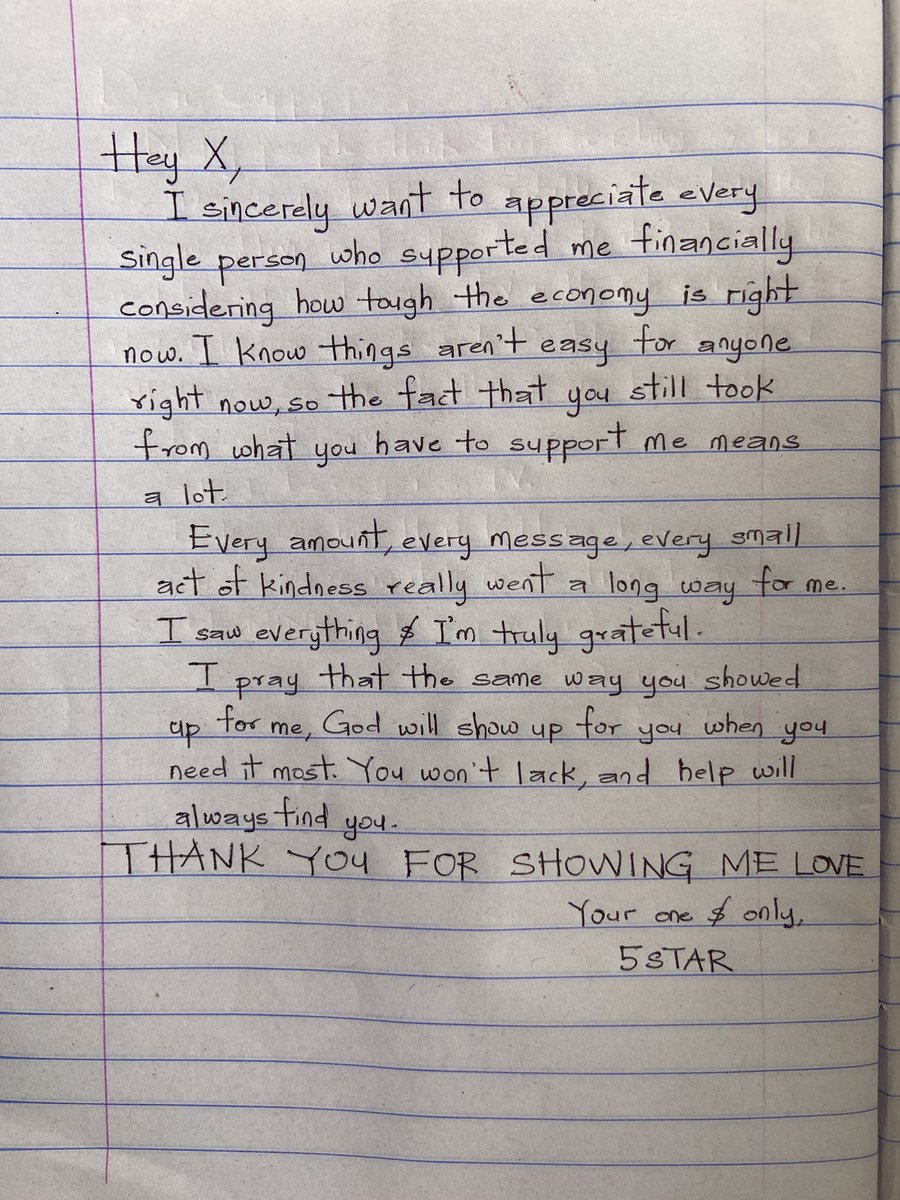 Hey X,
I sincerely want to appreciate every
single person who supported me financially
considering how tough the economy is right
now. I know things aren't easy for anyone
right now, so the fact that you still took
from what you have to support me means
a lot.
Every amount, every message, every small
act of kindness really went a long way for me.
I saw everything & I'm truly grateful.
I pray that the same way you showed
up for me, God will show up for you when you
need it most. You won't lack, and help will
always find you.
THANK YOU FOR SHOWING ME LOVE
Your one & only,
5STAR